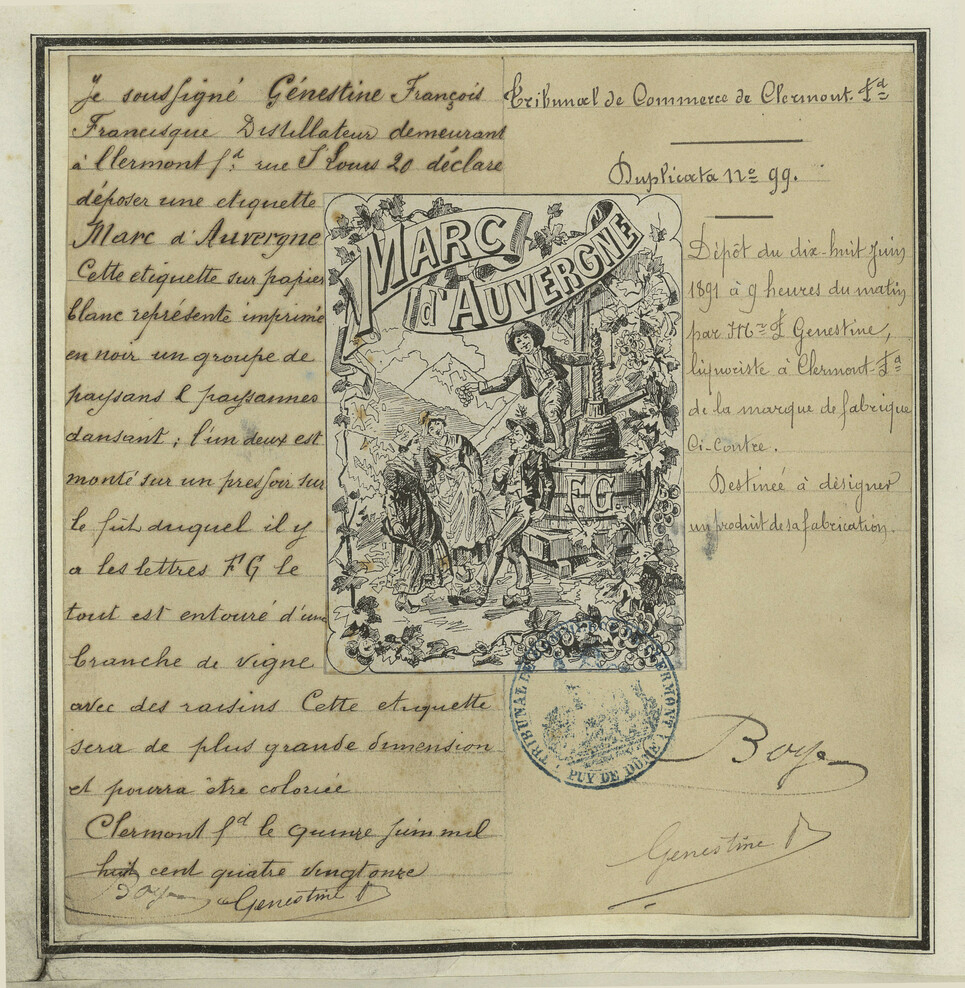 Je soussigné Génestine François
Francisque Distillateur demeurant
à Clermont fd: rue St Louis 20 déclare
déposer une etiquette
Marc d'Auvergne
Cette etiquette sur papier
blanc représente imprimé
en noir un groupe de
paysans & paysannes
dansant; l'un deux est
monté sur un pressoir sur
le fût duquel il y
a les lettres FG le
tout est entouré d'une
branche de vigne
avec des raisins Cette etiquette
sera de plus grande dimension
et pourra être coloriée
Clermont fd le quinze Juin mil
huit cent quatre vingt onze
Boye
Genestine F
MARC
d'AUVERGNE
F.G.
TRIBUNAL DE COMMERCE CLERMONT
PUY DE DÔME
Tribunal de Commerce de Clermont-Fd
Duplicata no 99.
Dépôt du dix-huit Juin
1891 à 9 heures du matin
par Mr F Genestine,
liquoriste à Clermont-Fd
de la marque de fabrique
Ci-Contre.
Destinée à désigner
un produit de sa fabrication.
Boye
Genestine F